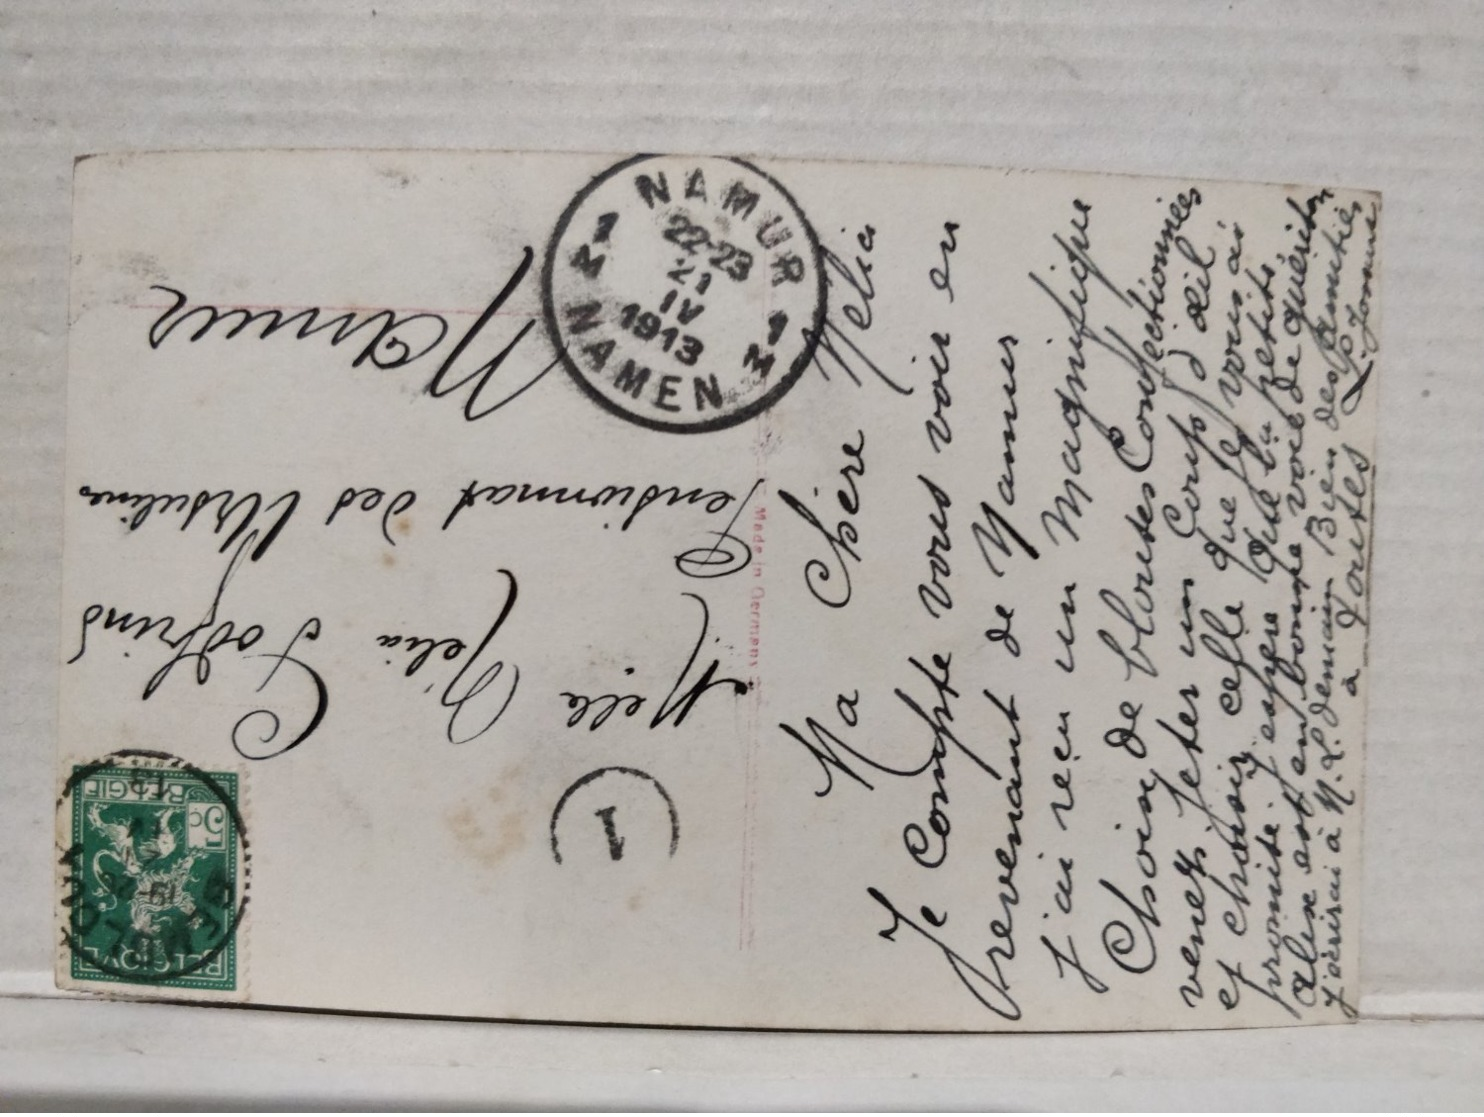 Ma Chère Nelia
Je Compte vous voir en
revenant de Namur
j'ai reçu un Magnifique
Choix de blouses Confectionnées
venez jeter un Coup d'œil
et choisir celle que je vous ai
promise j'espère que la petite
Aline est en bonne voie de guérison
j'écrirai à M. L. demain Bien des amitiés
à toutes
Melle Nelia Godfrind
Pensionnat des Ursulines
Namur
Made in Germany
NAMUR
22-23
XI
IV
1913
NAMEN
1
BELGIQUE
BELGIË
5c